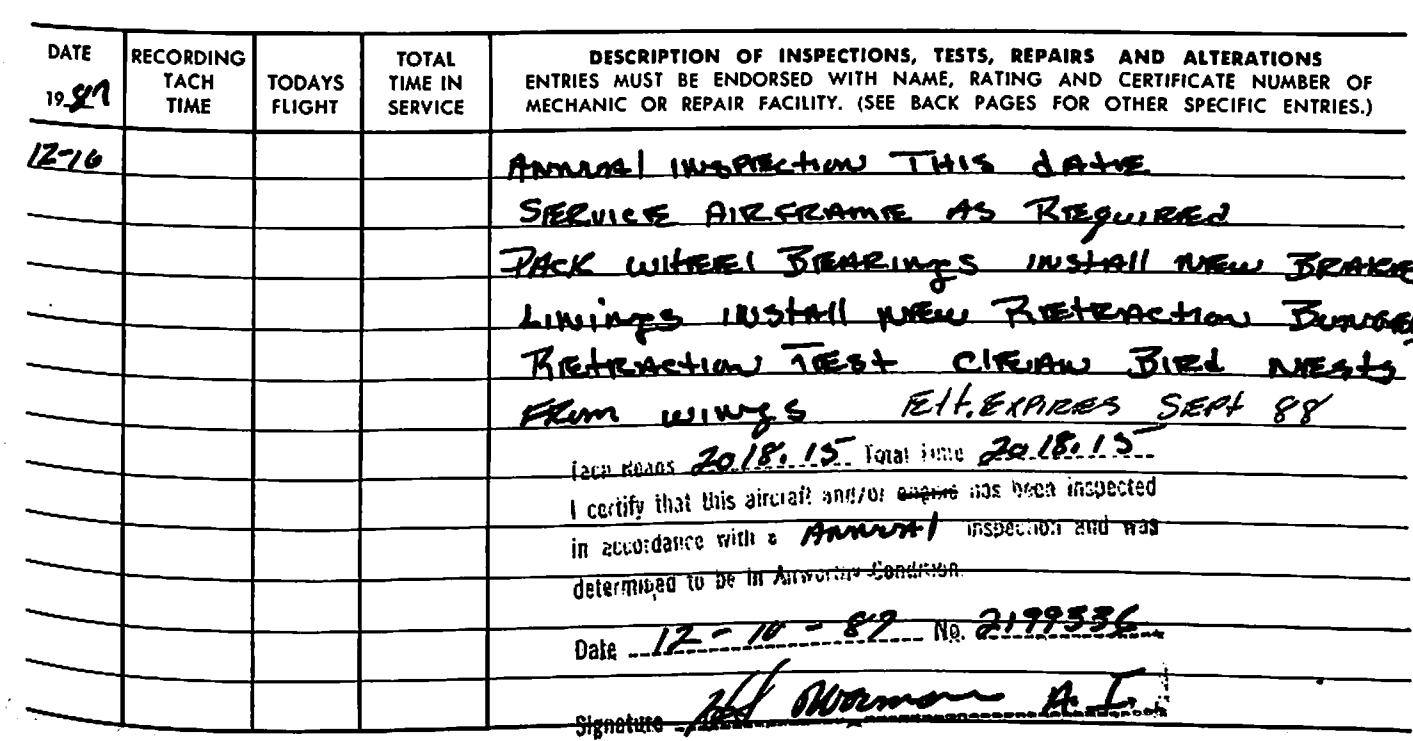 DATE
1987
RECORDING TACH TIME
TODAYS FLIGHT
TOTAL TIME IN SERVICE
DESCRIPTION OF INSPECTIONS, TESTS, REPAIRS AND ALTERATIONS
ENTRIES MUST BE ENDORSED WITH NAME, RATING AND CERTIFICATE NUMBER OF
MECHANIC OR REPAIR FACILITY. (SEE BACK PAGES FOR OTHER SPECIFIC ENTRIES.)
12-16
ANNUAL INSPECTION THIS DATE
SERVICE AIRFRAME AS REQUIRED
PACK WHEEL BEARINGS INSTALL NEW BRAKE
LININGS INSTALL NEW RETRACTION
RETRACTION TEST CLEAN BIRD NESTS
FROM WINGS Elt. EXPIRES SEPt 88
Tach Reads 2018.15 Total Time 2018.15
I certify that this aircraft and/or engine has been inspected
in accordance with a ANNUAL inspection and was
determined to be in Airworthy Condition.
Date 12-10-87 No. 2199336
Signature Norman A.I.